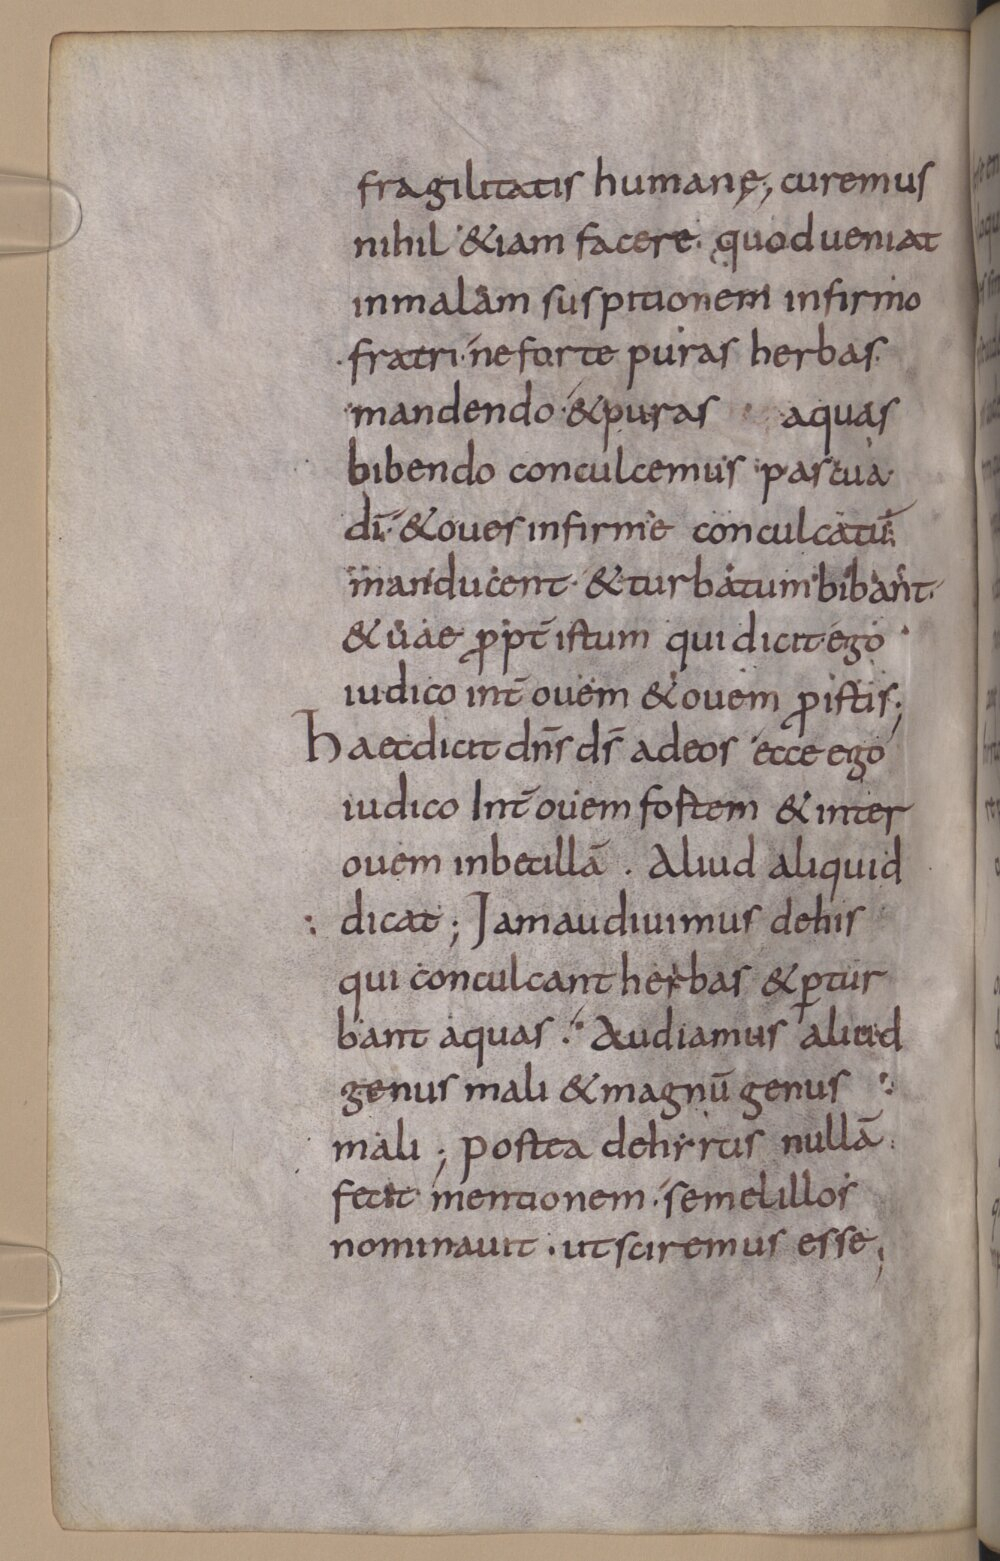 fragilitatis humanę; curemus
nihil &iam facere. quod ueniat
inmalam suspitionem infirmo
fratri. ne forte puras herbas
mandendo. &puras aquas
bibendo conculcemus pascua
dī. &oues infirme conculcatū
manducent. &turbatum bibant.
&uae ꝓpt̄ istum qui dicit ego
iudico int̄ ouem &ouem ꝓ istis;
Haec dicit dn̄s ds̄ ad eos ecce ego
iudico Int̄ ouem fostem &inter
ouem inbecillā. Aliud aliquid
dicat; Iam audiuimus de his
qui conculcant herbas &ꝑtur
bant aquas. Audiamus aliud
genus mali &magnū genus
mali; postea de hirtis nullā
fecit mentionem. semel illos
nominauit. ut sciremus esse;